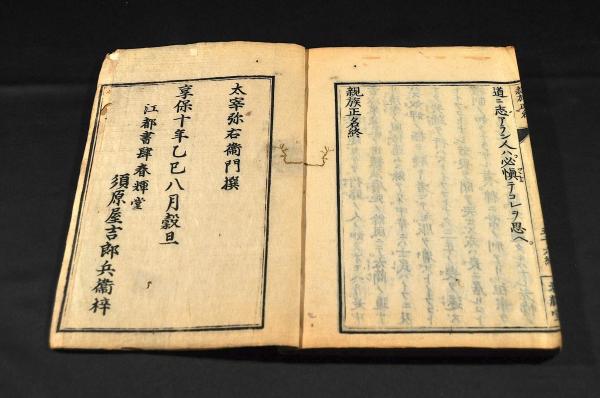 道ニ志アラン人ハ必慎テコレヲ思ヘ。
親族正名終
太宰弥右衛門撰
享保十年乙巳八月穀旦
江都書肆春輝堂
須原屋吉郎兵衛梓